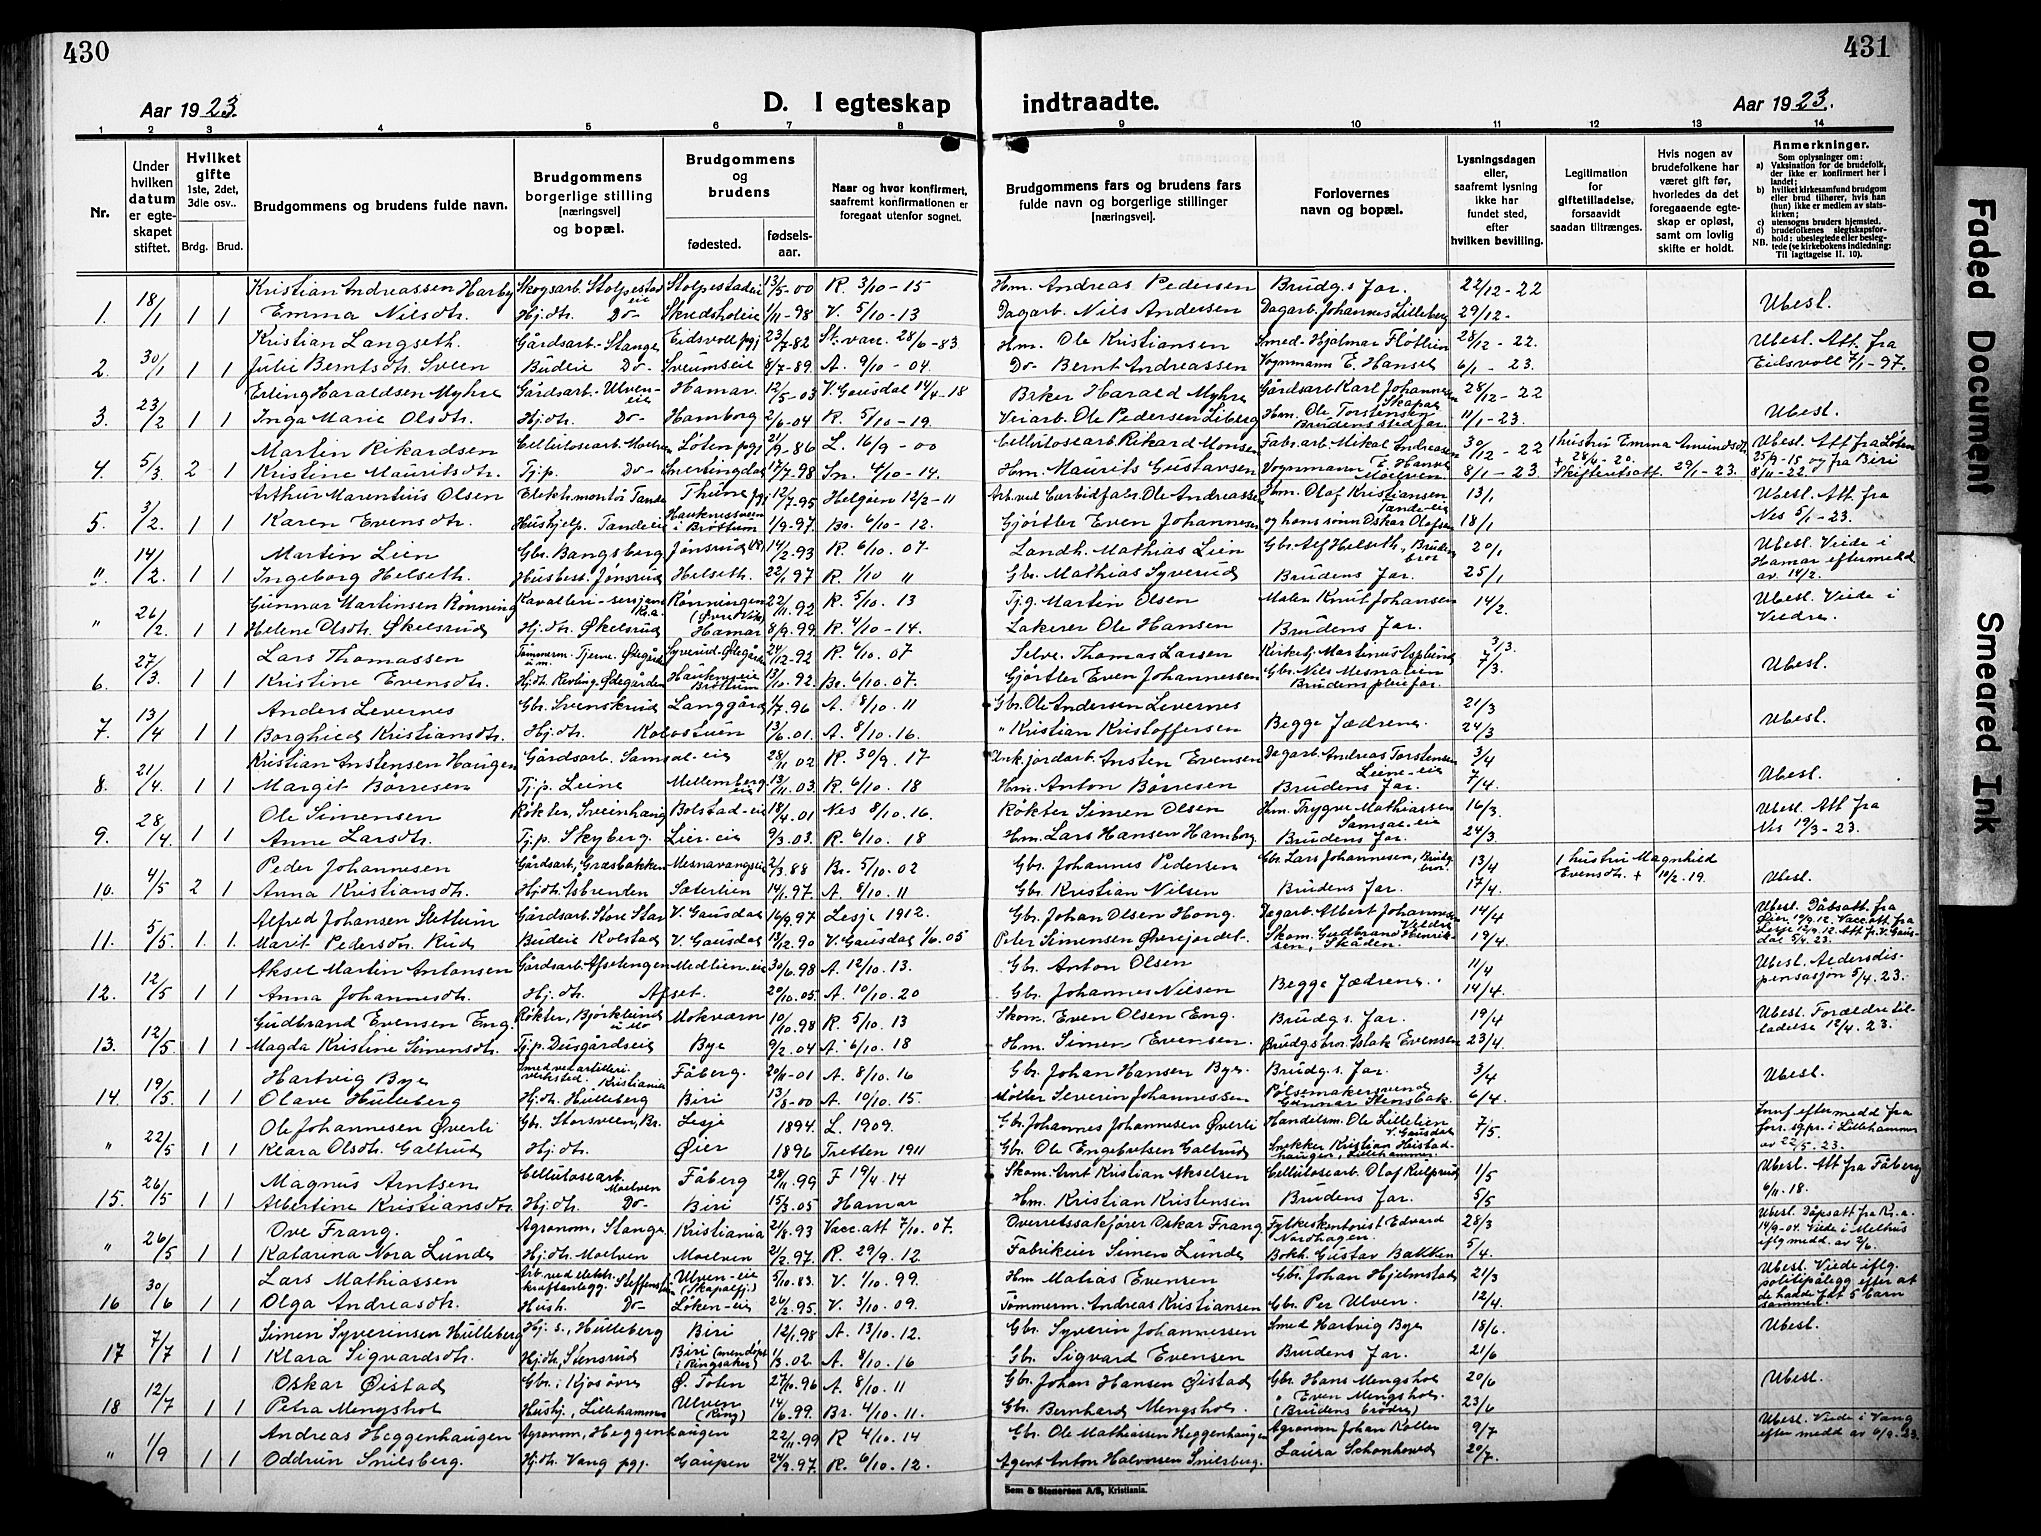 430
431
Aar 1923.
D. I egteskap
indtraadte.
Aar 1923.
1 2 3 4 5 6 7 8 9 10 11 12 13 14
Nr.
Under hvilken datum er egteskapet stiftet.
Hvilket gifte 1ste, 2det, 3die osv..
Brdg. Brud.
Brudgommens og brudens fulde navn.
Brudgommens borgerlige stilling [næringsvei] og bopæl.
Brudgommens og brudens
fødested.
fødselsaar.
Naar og hvor konfirmert, saafremt konfirmationen er foregaat utenfor sognet.
Brudgommens fars og brudens fars fulde navn og borgerlige stillinger [næringsvei].
Forlovernes navn og bopæl.
Lysningsdagen eller, saafremt lysning ikke har fundet sted, efter hvilken bevilling.
Legitimation for giftetilladelse, forsaavidt saadan tiltrænges.
Hvis nogen av brudefolkene har været gift før, hvorledes da det foregaaende egteskap er opløst, samt om lovlig skifte er holdt.
Anmerkninger.
Som oplysninger om:
a) Vaksination for de brudefolk, der ikke er konfirmert her i landet;
b) hvilket kirkesamfund brudgom eller brud tilhører, hvis han (hun) ikke er medlem av statskirken;
c) utensogns bruders hjemsted.
d) brudefolkenes slegtskapsforhold: ubeslegtede eller beslegtede (se kirkebokens indledning: Til Iagttagelse II. 10).
NB.
Kristian Andreassen Harby Skogsarb. Stolpestad eie Stolpestadeie 13/5-00 R. 3/10-15 Hm. Andreas Pedersen Brudg.s far. 22/12-22
1. 18/1 1 1 Emma Nilsdtr. Hj.dtr. Do- Skredsholeie 1/11-98 V. 5/10-13 Dagarb. Nils Andersen Dagarb. Johannes Lilleberg 29/12- Ubesl.
Kristian Langseth. Gårdsarb. Stange Eidsvoll pgj 23/7-82 St. vacc. 28/6-83 Hm. Ole Kristiansen Smed. Hjalmar Fløtlien 28/12-22. Ubesl. Att. fra
2. 30/1 1 1 Julie Berntsdtr. Sveen Budeie Do- Sveumseie 8/7-89. A. 9/10-04 Do- Bernt Andreassen Vognmann E. Hansel 6/1-23. Eidsvoll 7/1-97.
Erling Haraldsen Myhre Gårdsarb. Ulven-eie Hamar. 12/5-03 V. Gausdal 14/4-18 Baker Harald Myhre Gårdsarb Karl Johannesen Skapal 28/12-22
3. 23/2 1 1 Inga Marie Olsdtr. Hj.dtr. Do- Hamborg 2/6-04 R. 5/10-19. Veiarb. Ole Pedersen Hm. Ole Torstensen Brudens stedfar. 11/1-23. Ubesl.
Martin Rikardsen Cellulosearb. Moelven Løten pgj 21/9-86 L. 16/9-00 Cellulosearb. Rikard Monsen Fabr.arb. Mikal Andreasen 30/12-22 1 hustru Emma Amundsdtr. Ubesl. Att fra Løten
4. 5/3 2 1 Kristine Mauritsdtr. Tj.p. Do- Snertingdal 17/7-98 Sn. 4/10-14. Hm. Maurits Gustavsen Vognmann E. Hansel Moelven. 8/1-23 + 28/4-20. Skifterettsatt. 29/1-23. 25/9-15 og fra Biri 8/11-22
Arthur Marentius Olsen Elektr. montør Tande Thune pgj 12/7-95 Helgøen 12/2-11 Arb. ved Carbidfabr. Ole Andreassen Hm. Olaf Kristiansen Tande-eie 13/1 Ubesl. Att. fra
5. 3/2. 1 1 Karen Evensdtr. Hushjelp. Tandeeie i Brøttum 1/9-97 Br. 6/10-12. Gjørtler Even Johannesen og hans sønn Oskar Olafsen 18/1 Nes 5/1-23.
Martin Lien Gbr. Bangsberg Jønsrud 14/2.93 R. 6/10.07 Landh. Mathias Lien Gbr. Alf Helseth, Brudens bror 20/1 Ubesl. Viede i
" 14/2. 1 1 Ingeborg Helseth. Husbest. Jønsrud Helseth. 22/1.97 R. 1/10 11 Gbr. Mathias Syverud Brudens far. 25/1 Hamar eftermedd av. 14/2.
Gunnar Martinsen Rønning Kavalleri-sersjant Kr.a. Rønningen 22/11.92 R. 5/10. 13 Tj.g. Martin Olsen Maler Knut Johansen 14/2. Ubesl. Viede i
" 26/2. 1 1 Helene Olsdtr. Økelsrud Hj.dtr. Økelsrud Hamar 8/9.99 R. 4/10-14. Lakerer Ole Hansen Brudens far. Veldre.
Lars Thomassen Tømmerm. Tjerne, Ødegård u.m. Syverud-Ødegården 24/12-92 R. 4/10.07 Selve. Thomas Larsen Kirketj. Martinus Asplund 3/3.
6. 27/3. 1 1 Kristine Evensdtr. Hj.dtr. Ødegården Brøttum 13/10.92 Br. 6/10.07. Gjørtler Even Johannessen Gbr. Nils Mesnalien Brudens pleiefar. 7/3. Ubesl.
Anders Levernes Gbr. Svenskrud Langgård 1/7.96 A. 8/10.11 Gbr. Ole Andersen Levernes 21/3
7. 13/4 1 1 Borghild Kristiansdtr. Hj.dtr. Kolostuen 13/6.01. A. 8/10.16. " Kristian Kristoffersen Begge fædrene. 24/3 Ubesl.
Kristian Anstensen Haugen Gårdsarb. Samsal-eie 28/11 02 R. 30/9. 17 Ansten Evensen Dagarb. Andreas Torstensen Leine-eie 3/4
8. 21/4. 1 1 Margit Børresen Tj.p. Leine Mellemberg eie 13/11.03. R. 6/10. 18 Hm. Anton Børresen Brudens far. 7/4. Ubesl.
Ole Simensen Røkter, Sveinhaug Bolstad-eie 18/4.01 Nes 8/10.16. Røkter Simen Olsen Hm. Trygve Mathiassen Samsal-eie 16/3. Ubesl. Att fra
9. 28/4. 1 1 Anne Larsdtr. Tj.p. Skyberg. Lier-eie 9/3.03. R. 6/10. 18 Hm. Lars Hansen Hamborg. Brudens far. 24/3. Nes 19/3-23.
Peder Johannesen Gårdsarb, Græsbakken Mesnavangseie 2/3.88 Br. 5/10.02 Gbr. Johannes Pedersen Gbr. Lars Johannesen, Brudg. bror. 13/4 1 hustru Magnhild
10. 4/5 2 1 Anna Kristiansdtr. Hj.dtr. Åsbrenden Sæterlien 14/1.97. A. 8/10.11 Gbr. Kristian Nilsen Brudens far. 17/4. Evensdtr. + 10/2.19. Ubesl.
Alfred Johansen Slettum Gårdsarb. Store Star V. Gausdal 16/9.97 Lesje 1912. Gbr. Johan Olsen Hong. Dagarb. Albert Johannesen Veldre 14/4 Ubesl. Dåbsatt. fra
11. 5/5. 1. 1. Marit Pedersdtr. Rud Budeie Kolstad V. Gausdal 19/2.90 V. Gausdal 1/6.05 Peter Simensen Øverejordet. Skom. Gudbrand Henriksen, Skåden. 19/4. Øier 19/9.12. Vacc.att. fra Lesje 12/9.12. Att. fr. V. Gausdal 5/4.23.
Aksel Martin Antonsen Gårdsarb. Afsetengen Medlien-eie 30/6.98 A. 12/10.13. Gbr. Anton Olsen 11/4 Ubesl. Aldersdis-
12. 12/5 1 1 Anna Johannesdtr. Hj.dtr. Afset. 20/10.05. A. 10/10.20 Gbr. Johannes Nilsen Begge fædrene. 14/4. pensasjon 5/4.23.
Gudbrand Evensen Eng. Røkter, Bjørklund u. Mo Mokværn 10/10.98 R. 5/10. 13 Skom. Even Olsen Eng. Brudg.s. far. 19/4 Ubesl. Forældretil-
13. 12/5. 1 1 Magda Kristine Simensdtr. Tj.p. Dusgårdseie Bye 9/2.04 A. 6/10. 18 Hm. Simen Evensen. Brudg.s bror Islak Evensen 23/4. ladelse 12/4. 23.
Hartvig Bye Smed ved artilleri-verksted. Kristiania Fåberg. 20/11-01 A. 8/10.16 Gbr. Johan Hansen Bye. Brudg.s. far. 3/4 Ubesl.
14. 19/5. 1 1 Olave Hulleberg Hj.dtr. Hulleberg Biri 13/8-00 A. 10/10.15. Møller Severin Johannessen Pølsemakersvend Gunnar Stensbak. 6/4.
Ole Johannesen Øverli Gbr. Storsveen, Br. Lesje 1894. L. 1909. Gbr. Johannes Johannesen Øverli Handelsm. Ole Lillelien V. Gausdal 7/5. eftermedd fra
" 22/5 1 1 Klara Olsdtr. Galtrud Hj.dtr. Øier 1896 Tretten 1911 Gbr. Ole Engebretsen Galtrud Snekker Kristian Heistadhaugen, Lillehammer. sgpr. i Lillehammer av 22/5.23.
Magnus Arntsen Cellulosearb. Moelven Fåberg 28/11.99 F 19/4.14 Skom. Arnt Kristian Akselsen Cellulosearb. Olaf Rulprud 1/5 Ubesl. Att fra Fåberg
15. 26/5 1 1 Albertine Kristiansdtr. Hj.dtr. Do- Biri 15/3.05 Hamar Hm. Kristian Kristensen Brudens far. 5/5 6/11.18.
Ove Frang. Agronom, Stange Kristiania 21/8.93 Vacc.att 7/10.07. Overretssakfører Oskar Frang Fylkeskontorist Edvard Nordhagen. 28/3 Ubesl. Dåpsatt fra Kr.a.
" 26/5 1 1 Katarina Nora Lunde Hj.dtr. Moelven Moelven 21/2.97. R. 29/9.12 Fabrikeier Simen Lunde Bokh. Gustav Bakken 5/4. 14/9-04. Viede i Melhus iflg medd. av 2/6.
Lars Mathiassen Arb. ved elektr. kraftanlegg. Steffensrud Ulven-eie 5/10.83. V. 1/10.99. Hm Matias Evensen Gbr. Johan Hjelmstad 21/3 Ubesl. Viede iflg. politipålegg efter at
16 30/6 1 1 Olga Andreasdtr. Hush. Do- Løken-eie 26/2.95. V. 3/10.09. Tømmerm. Andreas Kristiansen Gbr. Per Ulven. 12/4. de hadde fåt 5 barn sammen.
Simen Syverinsen Hulleberg Hj. s., Hulleberg Biri 12/1.98 A. 13/10.12. Gbr. Syverin Johannessen Smed Hartvig Bye 18/6. Ubesl.
17 7/7 1 1 Klara Sigvardsdtr. Hj.dtr, Stensrud Biri (men døpt i Ringsaker) 1/3.02. A. 8/10.16 Gbr. Sigvard Evensen Brudens far. 21/6
Oskar Øistad Gbr. i Kjosøvre Ø. Toten 27/10.96 A. 8/10.11 Gbr. Johan Hansen Øistad Gbr. Hans Mengshol 20/6 Ubesl.
18 12/7 1 1 Petra Mengshol Hushj, Lillehammer Ulven (Ring) 14/6.99. Br. 4/10.11. Gbr. Bernhard Mengshol. " Even Mengshol. (Brudens brødre) 23/6
Andreas Heggenhaugen Agronom, Heggenhaugen 22/11.99 R 4/10.14 Gbr. Ole Mathiassen Heggenhaugen Agronom Johan Koller 9/7 Ubesl. Viede i Vang
" 1/9 1 1 Oddrun Snilsberg. Hj.dtr. Vang pgj. Gaupen 24/9.97. R. 6/10.12. Agent Anton Halvorsen Snilsberg. Laura Schonhowd 20/7. efter medd av 6/9.23.
Sem & Stenersen A/S, Kristiania.
Faded Document
Smeared Ink